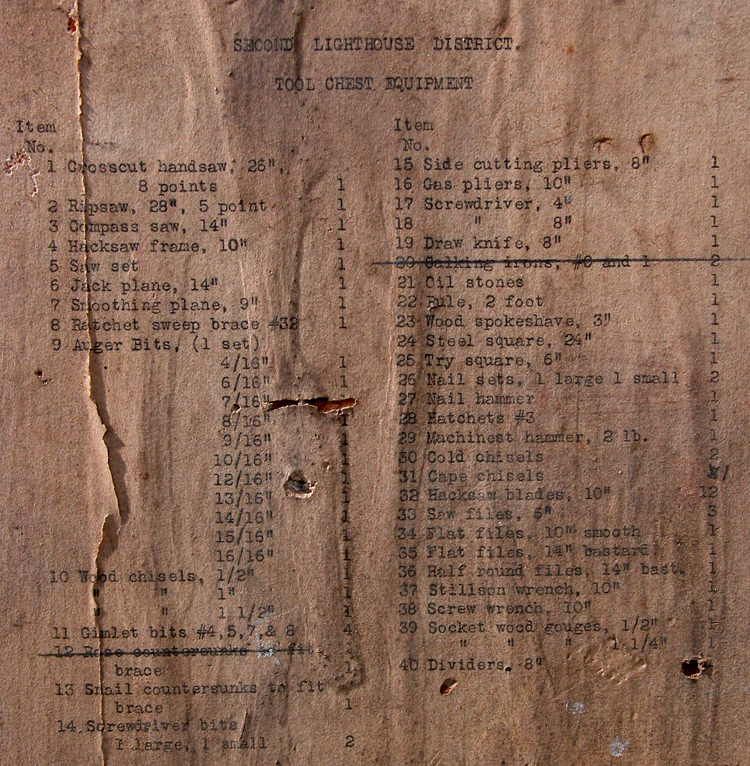 SECOND LIGHTHOUSE DISTRICT.
TOOL CHEST EQUIPMENT
Item
No.
1 Crosscut handsaw, 26",
8 points 1
2 Ripsaw, 28", 5 point 1
3 Compass saw, 14" 1
4 Hacksaw frame, 10" 1
5 Saw set 1
6 Jack plane, 14" 1
7 Smoothing plane, 9" 1
8 Ratchet sweep brace #32 1
9 Auger Bits, (1 set)
4/16" 1
6/16" 1
7/16"
8/16" 1
9/16" 1
10/16" 1
12/16" 1
13/16" 1
14/16" 1
15/16" 1
16/16" 1
10 Wood chisels, 1/2" 1
" " 1" 1
" " 1 1/2" 1
11 Gimlet bits #4,5,7,& 8 4
12 Rose countersunks to fit
brace 1
13 Snail countersunks to fit
brace 1
14 Screwdriver bits
1 large, 1 small 2
Item
No.
15 Side cutting pliers, 8" 1
16 Gas pliers, 10" 1
17 Screwdriver, 4" 1
18 " 8" 1
19 Draw knife, 8" 1
20 Calking irons, #0 and 1 2
21 Oil stones 1
22 Rule, 2 foot 1
23 Wood spokeshave, 3" 1
24 Steel square, 24" 1
25 Try square, 6" 1
26 Nail sets, 1 large 1 small 2
27 Nail hammer 1
28 Hatchets #3 1
29 Machinest hammer, 2 lb. 1
30 Cold chisels 2
31 Cape chisels 1
32 Hacksaw blades, 10" 12
33 Saw files, 6" 3
34 Flat files, 10" smooth 1
35 Flat files, 14" bastard 1
36 Half round files, 14" bast. 1
37 Stillson wrench, 10" 1
38 Screw wrench, 10" 1
39 Socket wood gouges, 1/2" 1
" " " 1 1/4" 1
40 Dividers, 8"